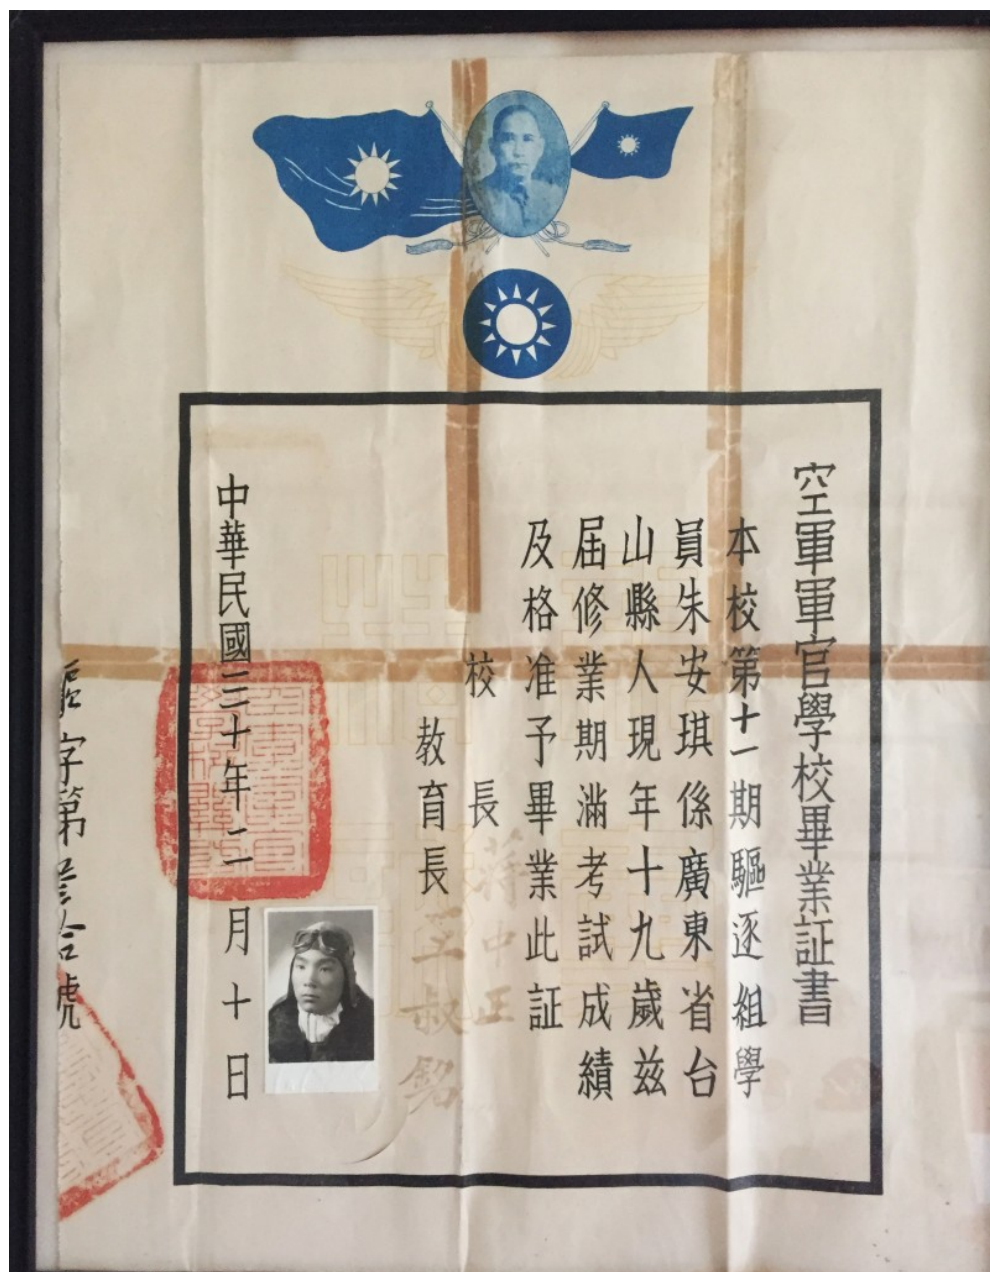 空軍軍官學校畢業証書
本校第十一期驅逐組學
員朱安琪係廣東省台
山縣人現年十九歲茲
屆修業期滿考試成績
及格准予畢業此証
校長 蔣中正
教育長 王叔銘
中華民國三十年二月十日
字第 號